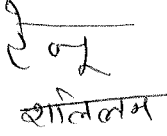 रेनू
शालिलम